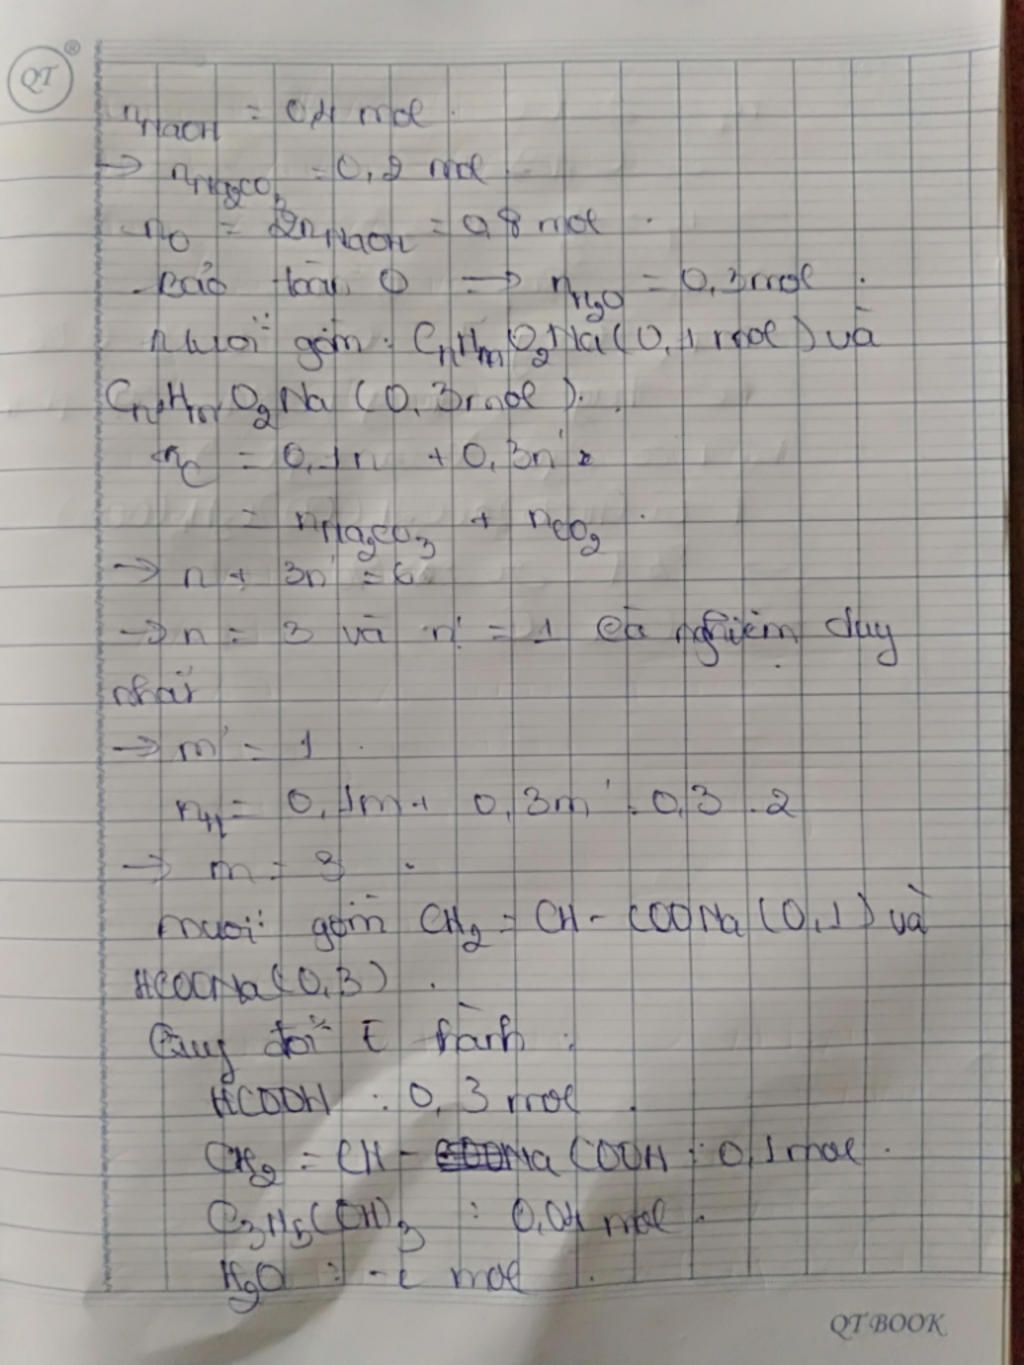 QT ®
nNaOH = 0,4 mol.
→ nNa2CO3 = 0,2 mol
nO = 2nNaOH = 0,8 mol.
Bảo toàn O → nH2O = 0,3 mol.
Muối gồm: CnHmO2Na (0,1 mol) và
Cn'Hm'O2Na (0,3 mol).
nC = 0,1n + 0,3n'
= nNa2CO3 + nCO2.
→ n + 3n' = 6
→ n = 3 và n' = 1 là nghiệm duy
nhất
→ m' = 1.
nH = 0,1m + 0,3m' = 0,3.2
→ m = 3.
Muối gồm CH2 = CH - COONa (0,1) và
HCOONa (0,3).
Quy đổi E thành:
HCOOH : 0,3 mol.
CH2 = CH - COOH : 0,1 mol.
C3H5(OH)3 : 0,04 mol.
H2O : - mol.
QT BOOK